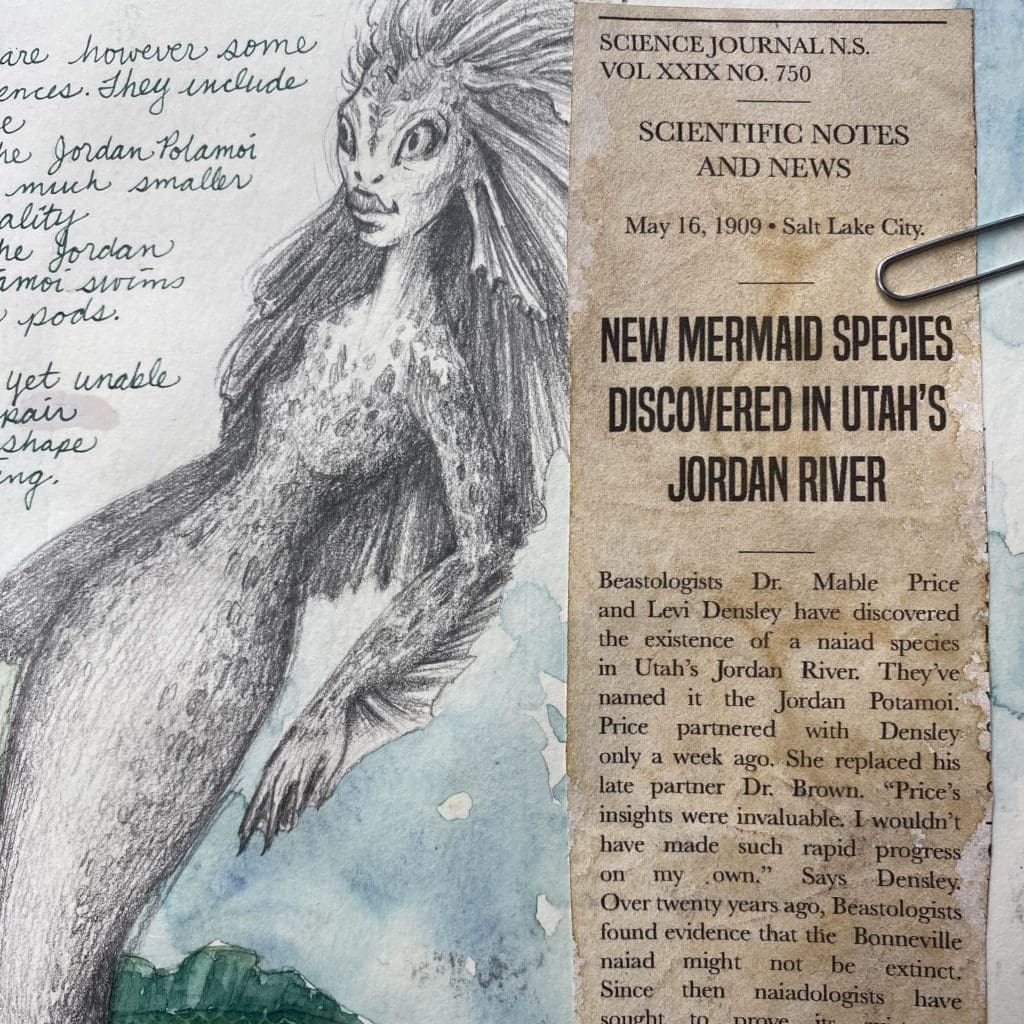 are however some
ences. They include
e
he Jordan Potamoi
much smaller
ality
he Jordan
amoi swims
pods.
yet unable
pair
shape
ing.
SCIENCE JOURNAL N.S.
VOL XXIX NO. 750
SCIENTIFIC NOTES
AND NEWS
May 16, 1909 • Salt Lake City.
NEW MERMAID SPECIES
DISCOVERED IN UTAH'S
JORDAN RIVER
Beastologists Dr. Mable Price
and Levi Densley have discovered
the existence of a naiad species
in Utah's Jordan River. They've
named it the Jordan Potamoi.
Price partnered with Densley
only a week ago. She replaced his
late partner Dr. Brown. “Price's
insights were invaluable. I wouldn't
have made such rapid progress
on my own.” Says Densley.
Over twenty years ago, Beastologists
found evidence that the Bonneville
naiad might not be extinct.
Since then naiadologists have
sought to prove its